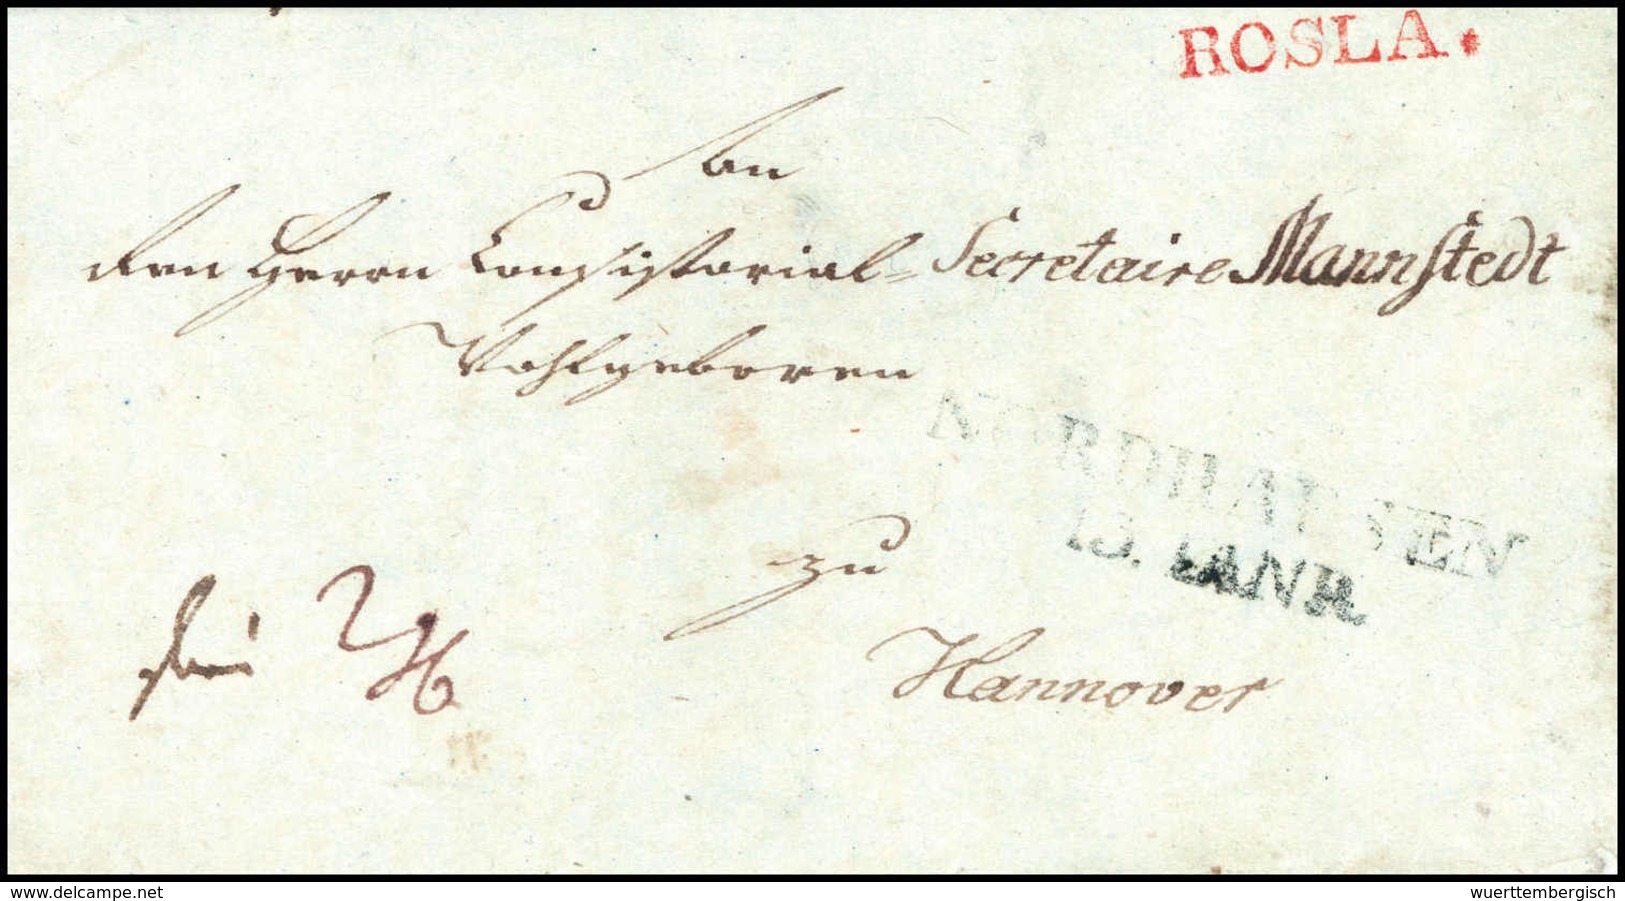 ROSLA.
An
den Herrn Consistorial-Secretaire Mannstedt
Wohlgeboren
NORDHAUSEN
13. IANR
zu
frei
Hannover
www.delcampe.net
wuerttembergisch